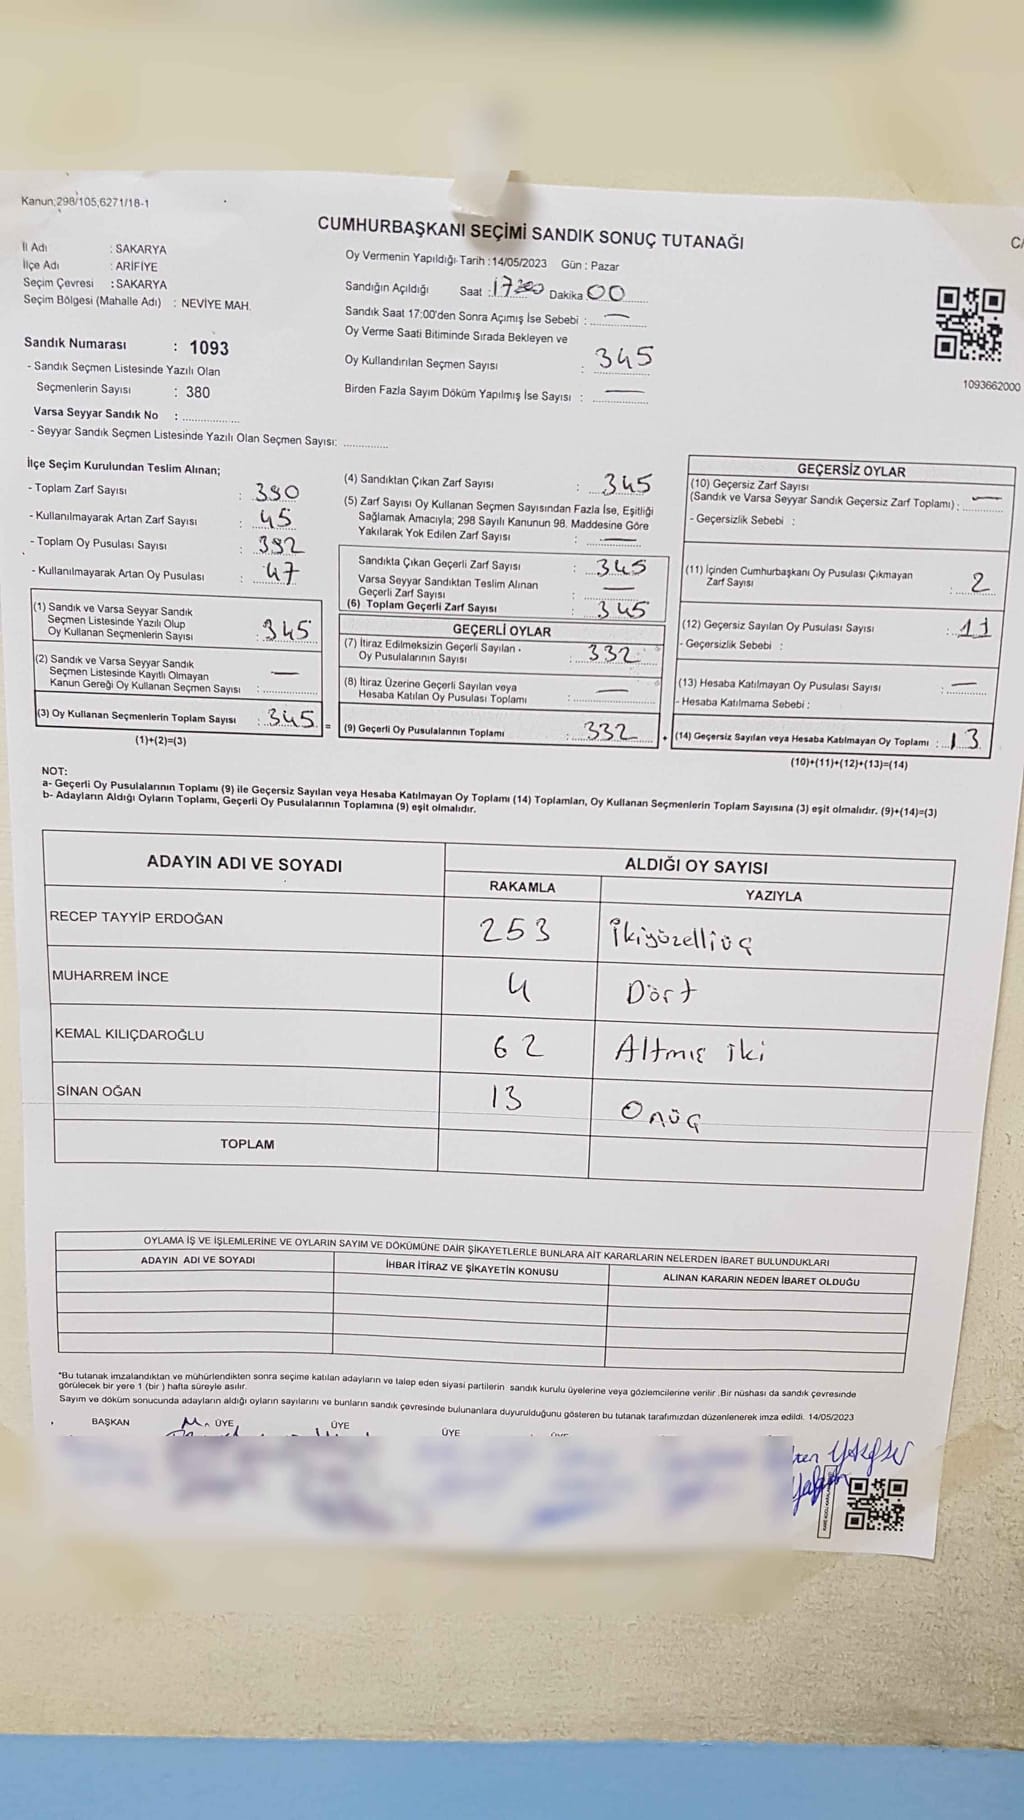 Kanun;298/105,6271/18-1
CUMHURBAŞKANI SEÇİMİ SANDIK SONUÇ TUTANAĞI
C/
İl Adı : SAKARYA
İlçe Adı : ARİFİYE
Seçim Çevresi : SAKARYA
Seçim Bölgesi (Mahalle Adı) : NEVİYE MAH.
Oy Vermenin Yapıldığı Tarih :14/05/2023 Gün : Pazar
Sandığın Açıldığı Saat : 17 Dakika 00
Sandık Saat 17:00'den Sonra Açımış İse Sebebi : —
Oy Verme Saati Bitiminde Sırada Bekleyen ve
Oy Kullandırılan Seçmen Sayısı : 345
Birden Fazla Sayım Döküm Yapılmış İse Sayısı : —
1093662000
Sandık Numarası : 1093
- Sandık Seçmen Listesinde Yazılı Olan
Seçmenlerin Sayısı : 380
Varsa Seyyar Sandık No : ..................
- Seyyar Sandık Seçmen Listesinde Yazılı Olan Seçmen Sayısı: ..............
İlçe Seçim Kurulundan Teslim Alınan;
- Toplam Zarf Sayısı : 390
- Kullanılmayarak Artan Zarf Sayısı : 45
- Toplam Oy Pusulası Sayısı : 392
- Kullanılmayarak Artan Oy Pusulası : 47
(1) Sandık ve Varsa Seyyar Sandık
Seçmen Listesinde Yazılı Olup
Oy Kullanan Seçmenlerin Sayısı : 345
(2) Sandık ve Varsa Seyyar Sandık
Seçmen Listesinde Kayıtlı Olmayan
Kanun Gereği Oy Kullanan Seçmen Sayısı : —
(3) Oy Kullanan Seçmenlerin Toplam Sayısı : 345 =
(1)+(2)=(3)
(4) Sandıktan Çıkan Zarf Sayısı : 345
(5) Zarf Sayısı Oy Kullanan Seçmen Sayısından Fazla İse, Eşitliği
Sağlamak Amacıyla; 298 Sayılı Kanunun 98. Maddesine Göre
Yakılarak Yok Edilen Zarf Sayısı : —
Sandıkta Çıkan Geçerli Zarf Sayısı : 345
Varsa Seyyar Sandıktan Teslim Alınan
Geçerli Zarf Sayısı : —
(6) Toplam Geçerli Zarf Sayısı : 345
GEÇERLİ OYLAR
(7) İtiraz Edilmeksizin Geçerli Sayılan
Oy Pusulalarının Sayısı : 332
(8) İtiraz Üzerine Geçerli Sayılan veya
Hesaba Katılan Oy Pusulası Toplamı : —
(9) Geçerli Oy Pusulalarının Toplamı : 332 +
GEÇERSİZ OYLAR
(10) Geçersiz Zarf Sayısı
(Sandık ve Varsa Seyyar Sandık Geçersiz Zarf Toplamı) : —
- Geçersizlik Sebebi :
(11) İçinden Cumhurbaşkanı Oy Pusulası Çıkmayan
Zarf Sayısı : 2
(12) Geçersiz Sayılan Oy Pusulası Sayısı : 11
- Geçersizlik Sebebi :
(13) Hesaba Katılmayan Oy Pusulası Sayısı : —
- Hesaba Katılmama Sebebi :
(14) Geçersiz Sayılan veya Hesaba Katılmayan Oy Toplamı : 13
(10)+(11)+(12)+(13)=(14)
NOT:
a- Geçerli Oy Pusulalarının Toplamı (9) ile Geçersiz Sayılan veya Hesaba Katılmayan Oy Toplamı (14) Toplamları, Oy Kullanan Seçmenlerin Toplam Sayısına (3) eşit olmalıdır. (9)+(14)=(3)
b- Adayların Aldığı Oyların Toplamı, Geçerli Oy Pusulalarının Toplamına (9) eşit olmalıdır.
ADAYIN ADI VE SOYADI ALDIĞI OY SAYISI
RAKAMLA YAZIYLA
RECEP TAYYİP ERDOĞAN 253 İkiyüzelliüç
MUHARREM İNCE 4 Dört
KEMAL KILIÇDAROĞLU 62 Altmış iki
SİNAN OĞAN 13 Onüç
TOPLAM
OYLAMA İŞ VE İŞLEMLERİNE VE OYLARIN SAYIM VE DÖKÜMÜNE DAİR ŞİKAYETLERLE BUNLARA AİT KARARLARIN NELERDEN İBARET BULUNDUKLARI
ADAYIN ADI VE SOYADI İHBAR İTİRAZ VE ŞİKAYETİN KONUSU ALINAN KARARIN NEDEN İBARET OLDUĞU
*Bu tutanak imzalandıktan ve mühürlendikten sonra seçime katılan adayların ve talep eden siyasi partilerin sandık kurulu üyelerine veya gözlemcilerine verilir .Bir nüshası da sandık çevresinde
görülecek bir yere 1 (bir ) hafta süreyle asılır.
Sayım ve döküm sonucunda adayların aldığı oyların sayılarını ve bunların sandık çevresinde bulunanlara duyurulduğunu gösteren bu tutanak tarafımızdan düzenlenerek imza edildi. 14/05/2023
BAŞKAN ÜYE ÜYE ÜYE